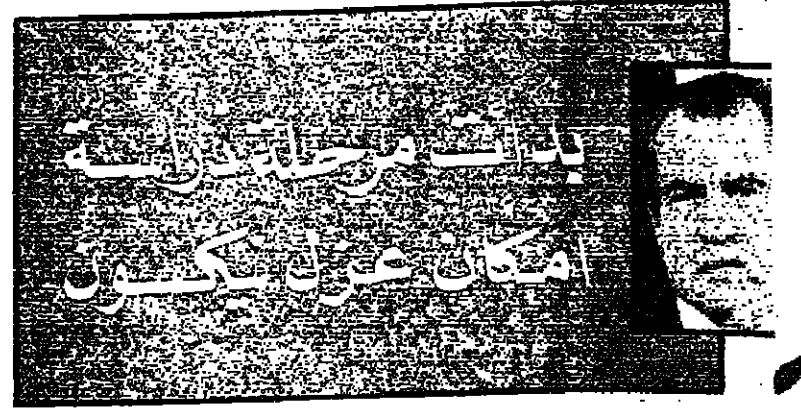 بدأت مرحلة دراسة
امكان عزل نيكسون